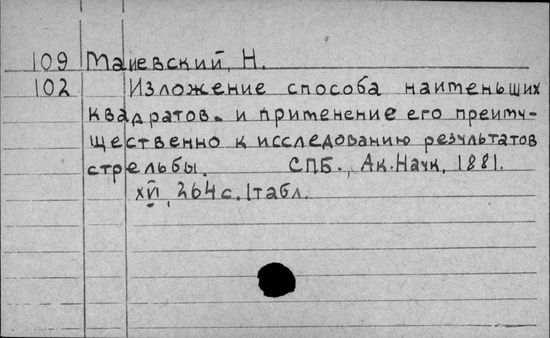 109 Маиевский, Н.
102 Изложение способа наименьших
квадратов. и применение его преиму-
щественно к исследованию результатов
стрельбы. СПБ., Ак.Наук, 1881.
XVI, 264 с. 1 табл.